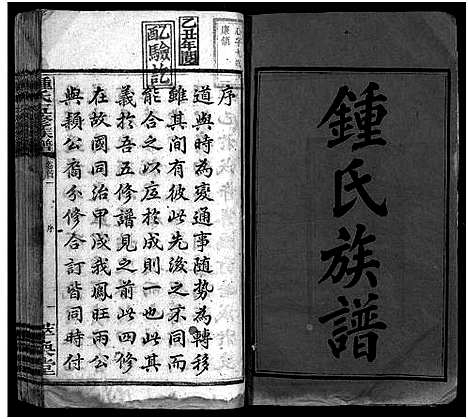 鍾氏族譜
乙丑年
配驗訖
序
道與時為變通事隨勢為轉移
雖其間有彼此先後之不同而
能合之以底於成則一也其
義於吾五修譜見之前此四修
在故國同治甲戌我鳳旺兩公
與穎公裔分修合訂皆同時付
鍾氏五修族譜
序
一